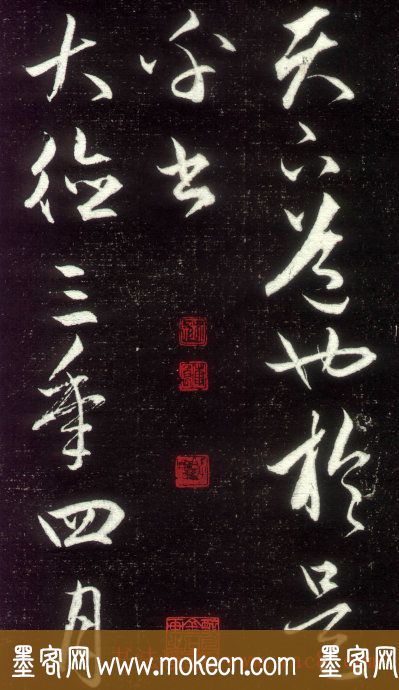 天下道也於是
乎書
大德三年四月
墨客网 www.mokecn.com 墨客网